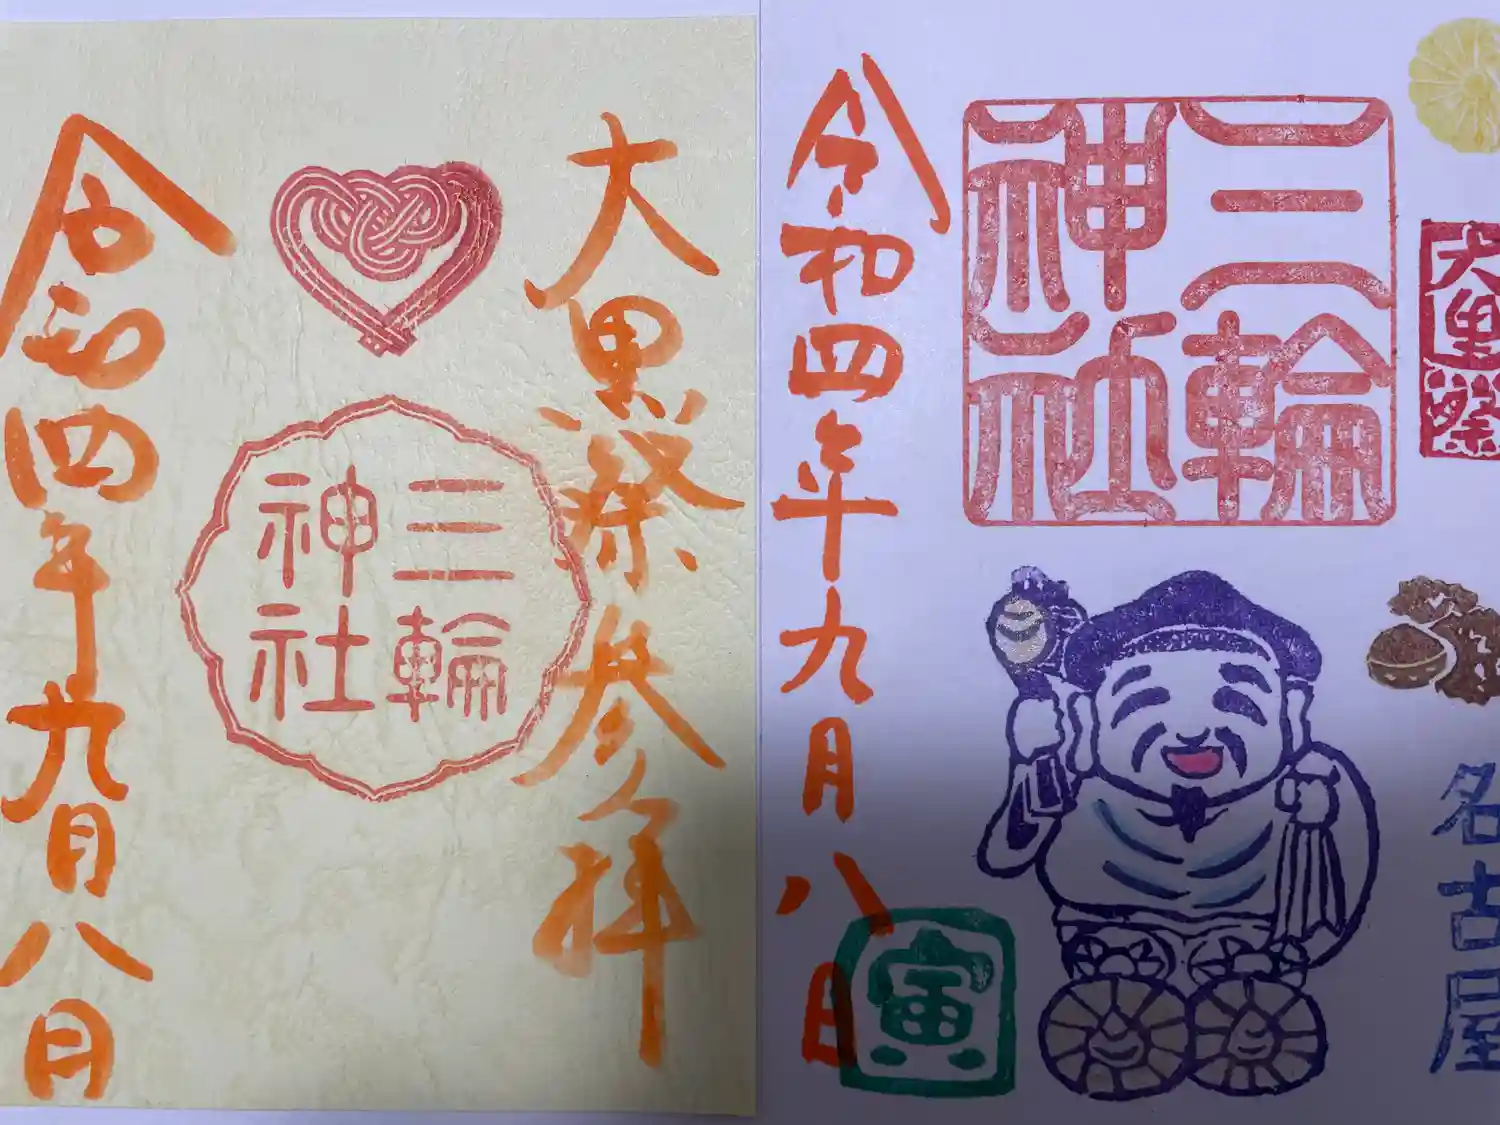 大黒祭参拝
三輪
神社
令和四年九月八日
大黒祭
名古屋
三輪
神社
寅
令和四年九月八日